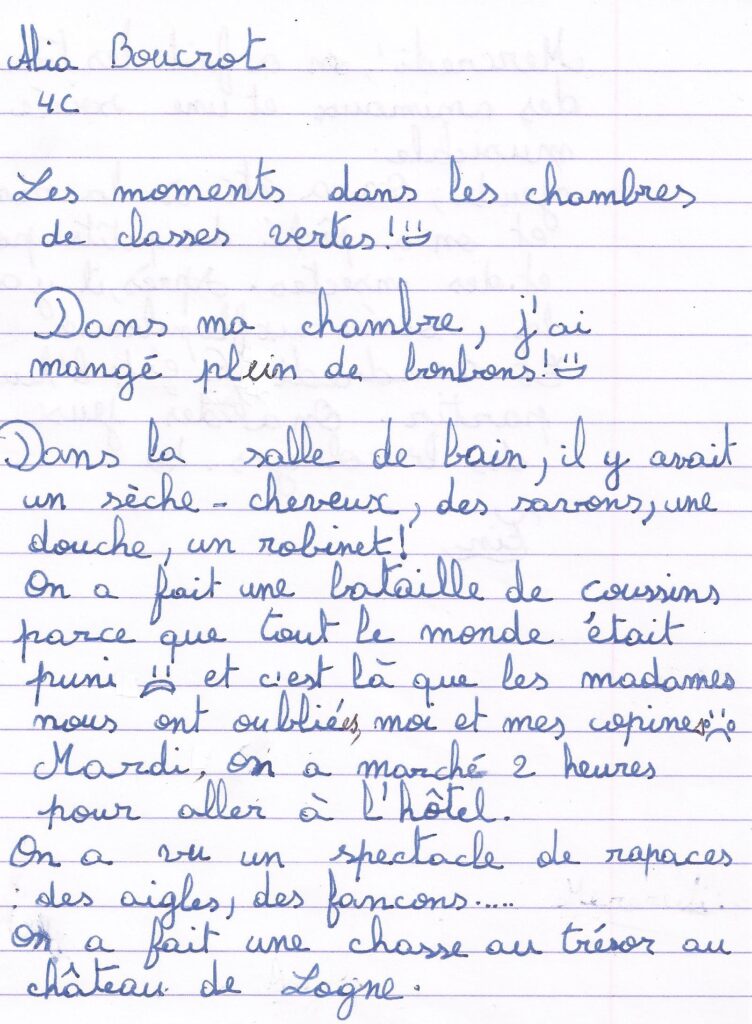 Alia Boucrot
4C
Les moments dans les chambres
de classes vertes!
Dans ma chambre, j'ai
mangé plein de bonbons!
Dans la salle de bain, il y avait
un sèche-cheveux, des savons, une
douche, un robinet!
On a fait une bataille de coussins
parce que tout le monde était
puni et c'est là que les madames
nous ont oubliées, moi et mes copines
Mardi, on a marché 2 heures
pour aller à l'hôtel.
On a vu un spectacle de rapaces
: des aigles, des fancons.....
On a fait une chasse au trésor au
château de Logne.